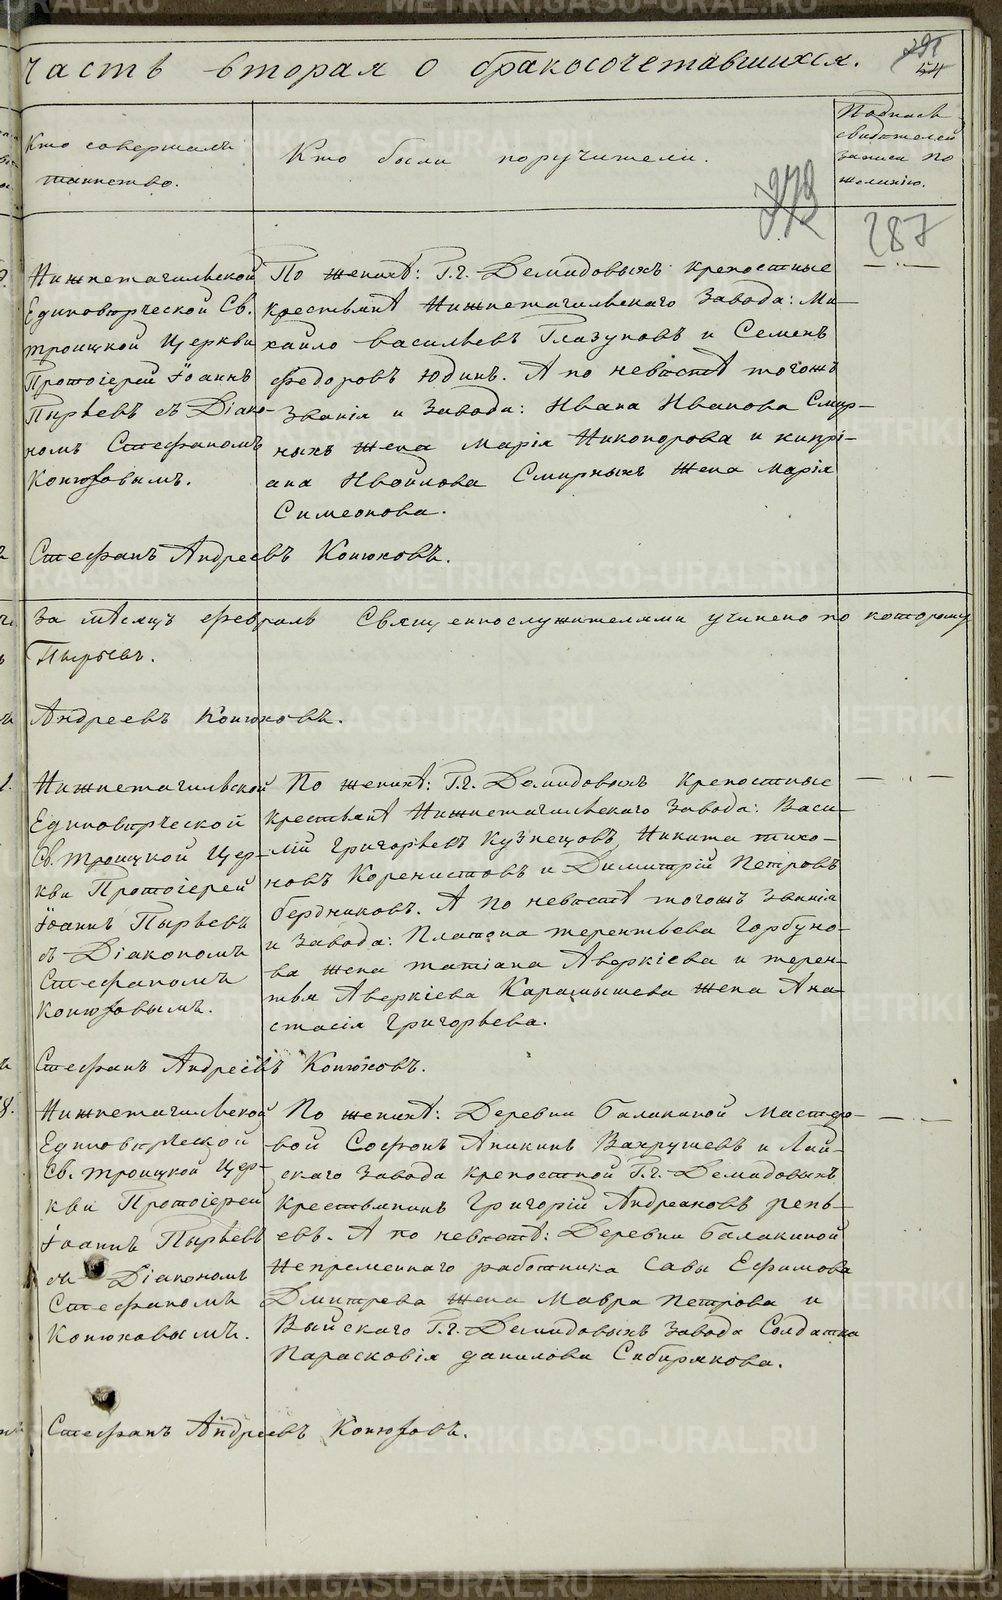 Часть вторая о бракосочетавшихся.
54
Кто совершалъ
таинство.
Кто были поручители.
Подпись
свидѣтелей
записи по
желанію.
287
Нижнетагильской
Единовѣрческой Св.
Троицкой Церкви
Протоіерей Іоаннъ
Пырьевъ съ Діако-
номъ Стефаномъ
Конюховымъ.
По женихѣ: Г.г. Демидовыхъ крепостные
крестьянѣ Нижнетагильскаго Завода: Ми-
хайло Васильевъ Глазуновъ и Семенъ
Федоровъ Юдинъ. А по невѣстѣ тогожъ
Званія и Завода: Ивана Иванова Смир-
ныхъ Жена Марія Никонорова и Кипрі-
ана Ивойлова Смирныхъ Жена Марія
Симеонова.
Стефанъ Андреевъ Конюховъ.
За мѣсяцъ февраль Священнослужителями учинено по которому
Пырьевъ.
Андреевъ Конюховъ.
Нижнетагильской
Единовѣрческой
Св. Троицкой Цер-
кви Протоіерей
Іоаннъ Пырьевъ
съ Діакономъ
Стефаномъ
Конюховымъ.
По женихѣ: Г.г. Демидовыхъ крепостные
крестьянѣ Нижнетагильскаго Завода: Васи-
лій Григорьевъ Кузнецовъ, Никита Тихо-
новъ Коренистовъ и Димитрій Петровъ
Бердниковъ. А по невѣстѣ тогожъ Званія
и Завода: Платона Терентьева Горбуно-
ва Жена Татіана Аверкіева и Терен-
тья Аверкіева Карамышева Жена Ана-
стасія Григорьева.
Стефанъ Андреевъ Конюховъ.
Нижнетагильской
Единовѣрческой
Св. Троицкой Цер-
кви Протоіерей
Іоаннъ Пырьевъ
съ Діакономъ
Стефаномъ
Конюховымъ.
По женихѣ: Деревни Балакиной Мастеро-
вой Софонъ Аникинъ Вахрушевъ и Лай-
скаго Завода крепостной Г.г. Демидовыхъ
Крестьянинъ Григорій Андреановъ Репь-
евъ. А по невѣстѣ: Деревни Балакиной
Непременнаго работника Савы Ефимова
Дмитрева Жена Мавра Петрова и
Выйскаго Г.г. Демидовыхъ Завода Солдатка
Парасковія Данилова Сибирякова.
Стефанъ Андреевъ Конюховъ.